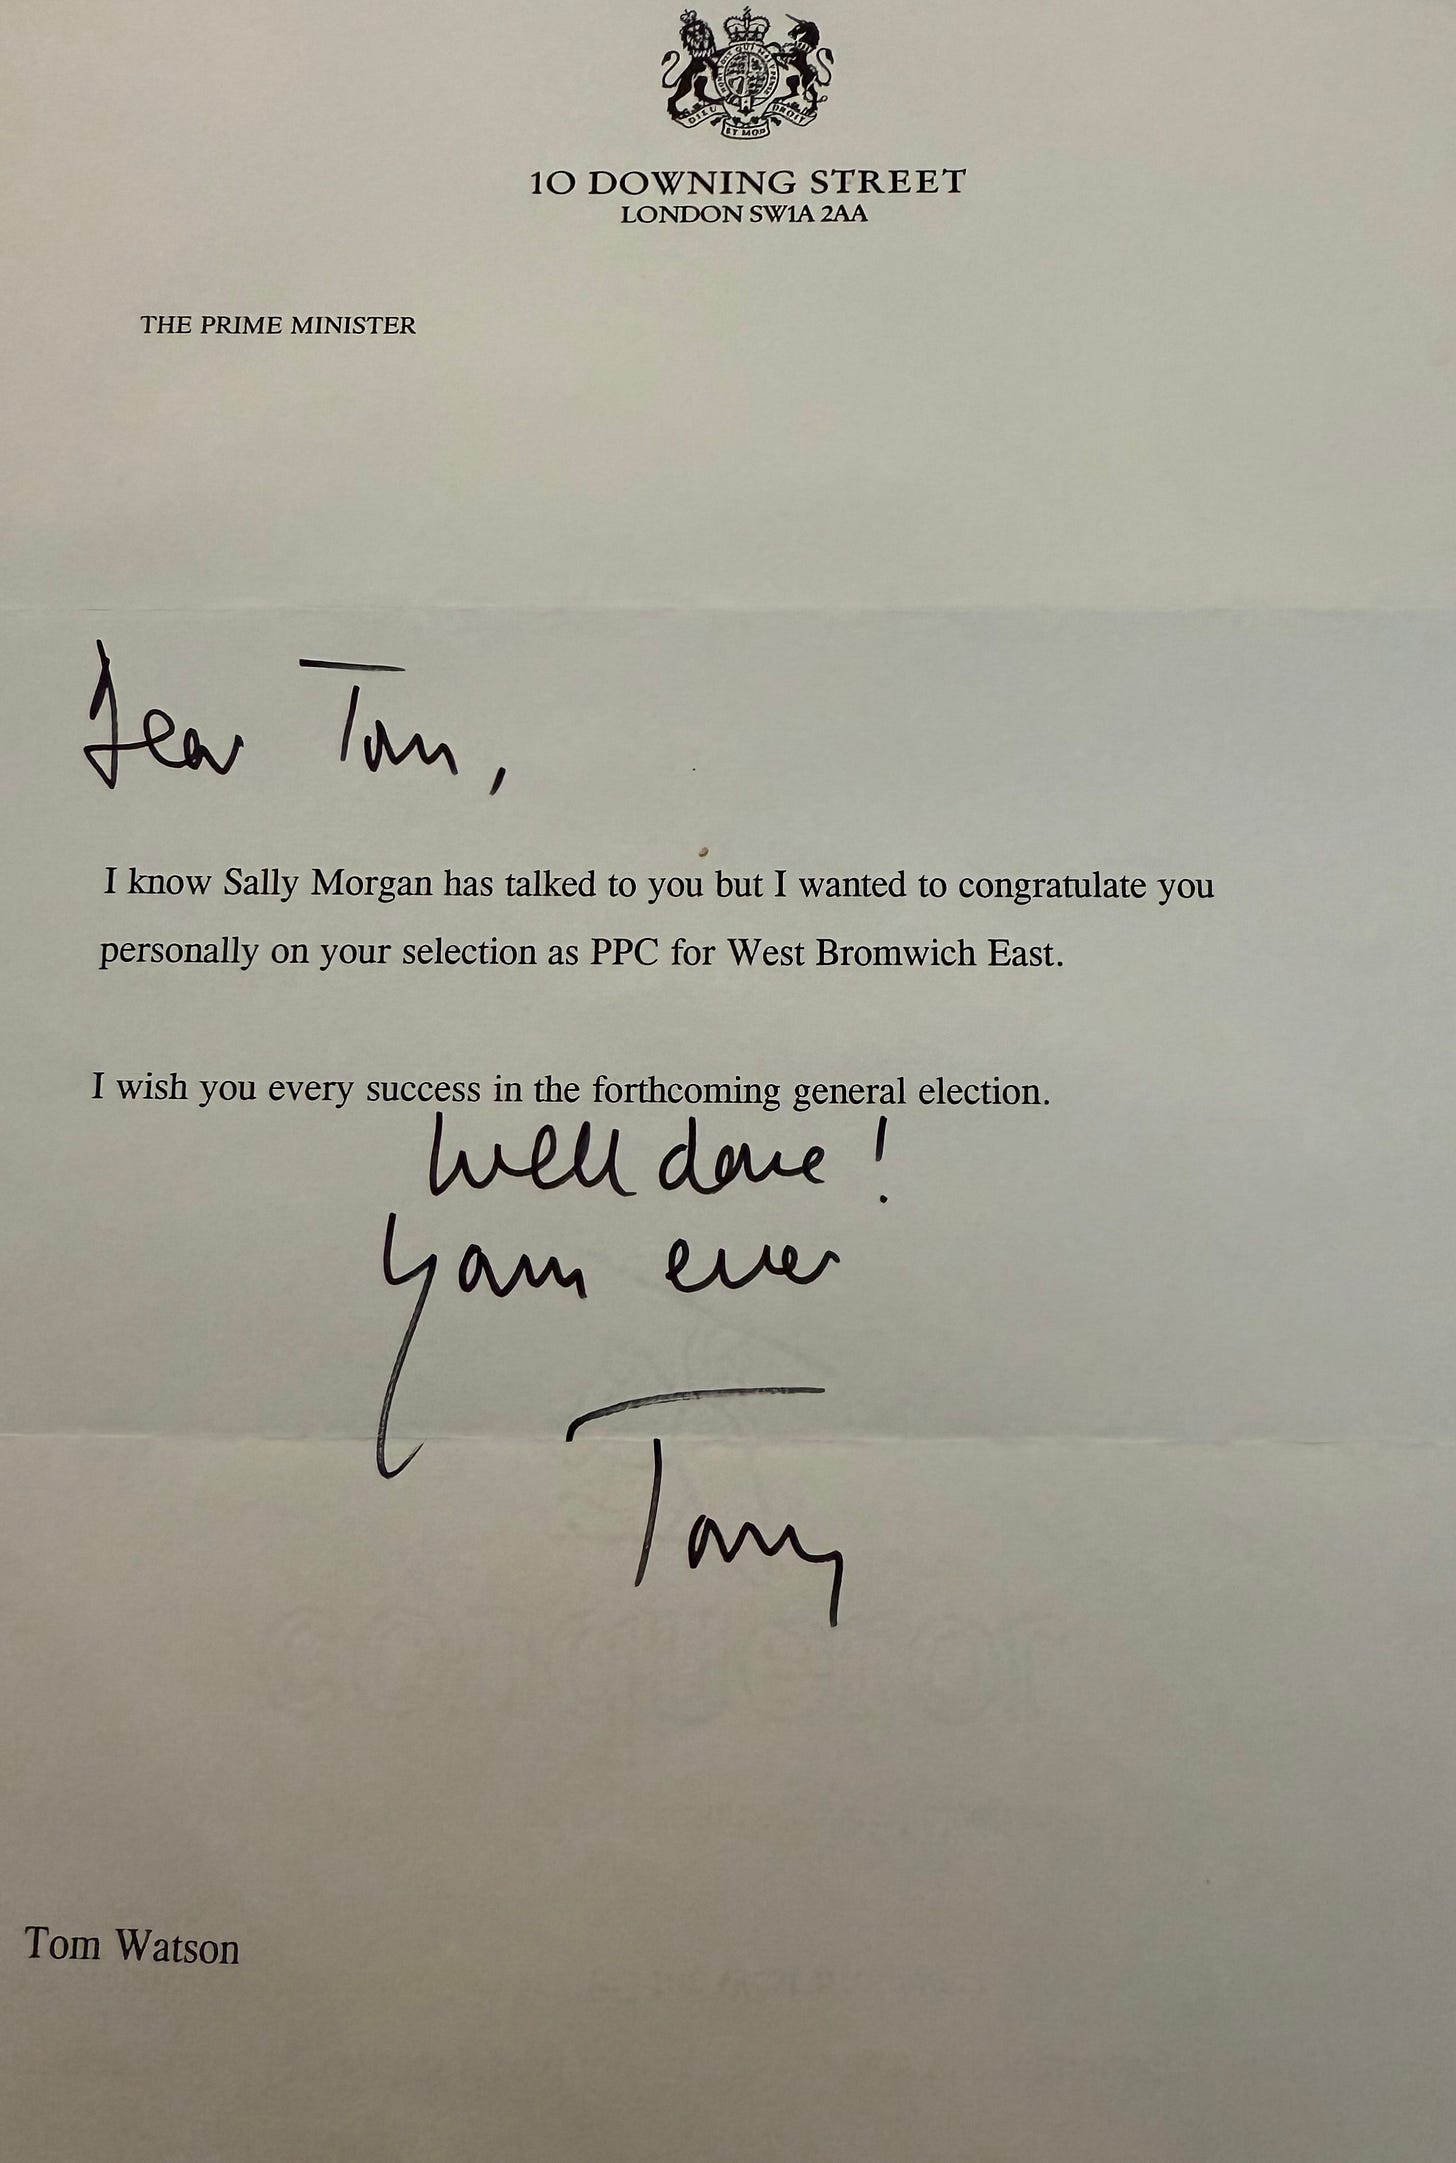 DIEU ET MON DROIT
10 DOWNING STREET
LONDON SW1A 2AA
THE PRIME MINISTER
Dear Tom,
I know Sally Morgan has talked to you but I wanted to congratulate you
personally on your selection as PPC for West Bromwich East.
I wish you every success in the forthcoming general election.
Well done!
Yours ever
Tony
Tom Watson